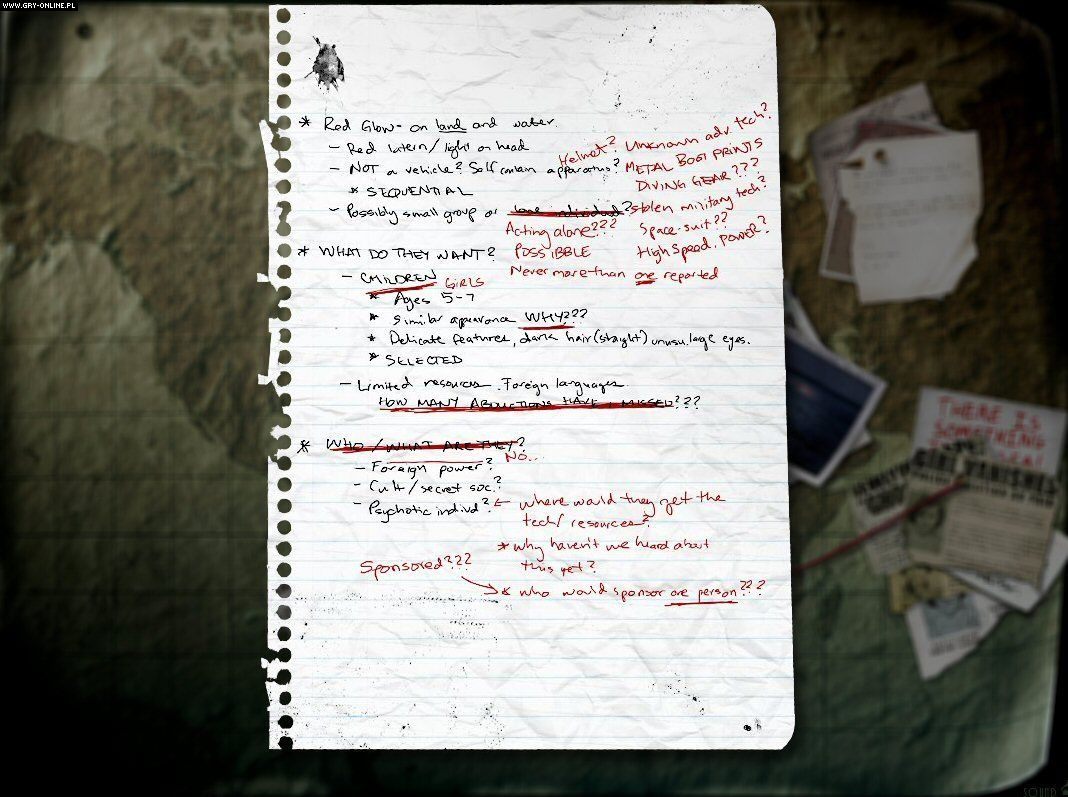 WWW.GRY-ONLINE.PL
* Red Glow - on land and water.
- Red latern/light on head
Helmet?
Unknown adv. tech?
- NOT a vehicle? Self contain apparatus?
METAL BOOT PRINTS
DIVING GEAR???
* SEQUENTIAL
- Possibly small group or lone individual?
stolen military tech?
Acting alone???
Space-suit??
POSSIBBLE
High Speed. POWER?
Never more than one reported
* WHAT DO THEY WANT?
- CHILDREN GIRLS
* Ages 5-7
* Similar apearance WHY???
* Delicate features, dark hair (staight) unusu. large eyes.
* SELECTED
- Limited resources. Foreign languages
HOW MANY ABDUCTIONS HAVE I MISSED???
* WHO / WHAT ARE THEY?
NO...
- Foreign power?
- Cult/secret soc.?
- Psychotic individ? ← where would they get the
tech/resources?
* why haven't we heard about
this yet?
Sponsored???
* who would sponsor one person???
THERE IS
SOMETHING
GIRL VANISHES